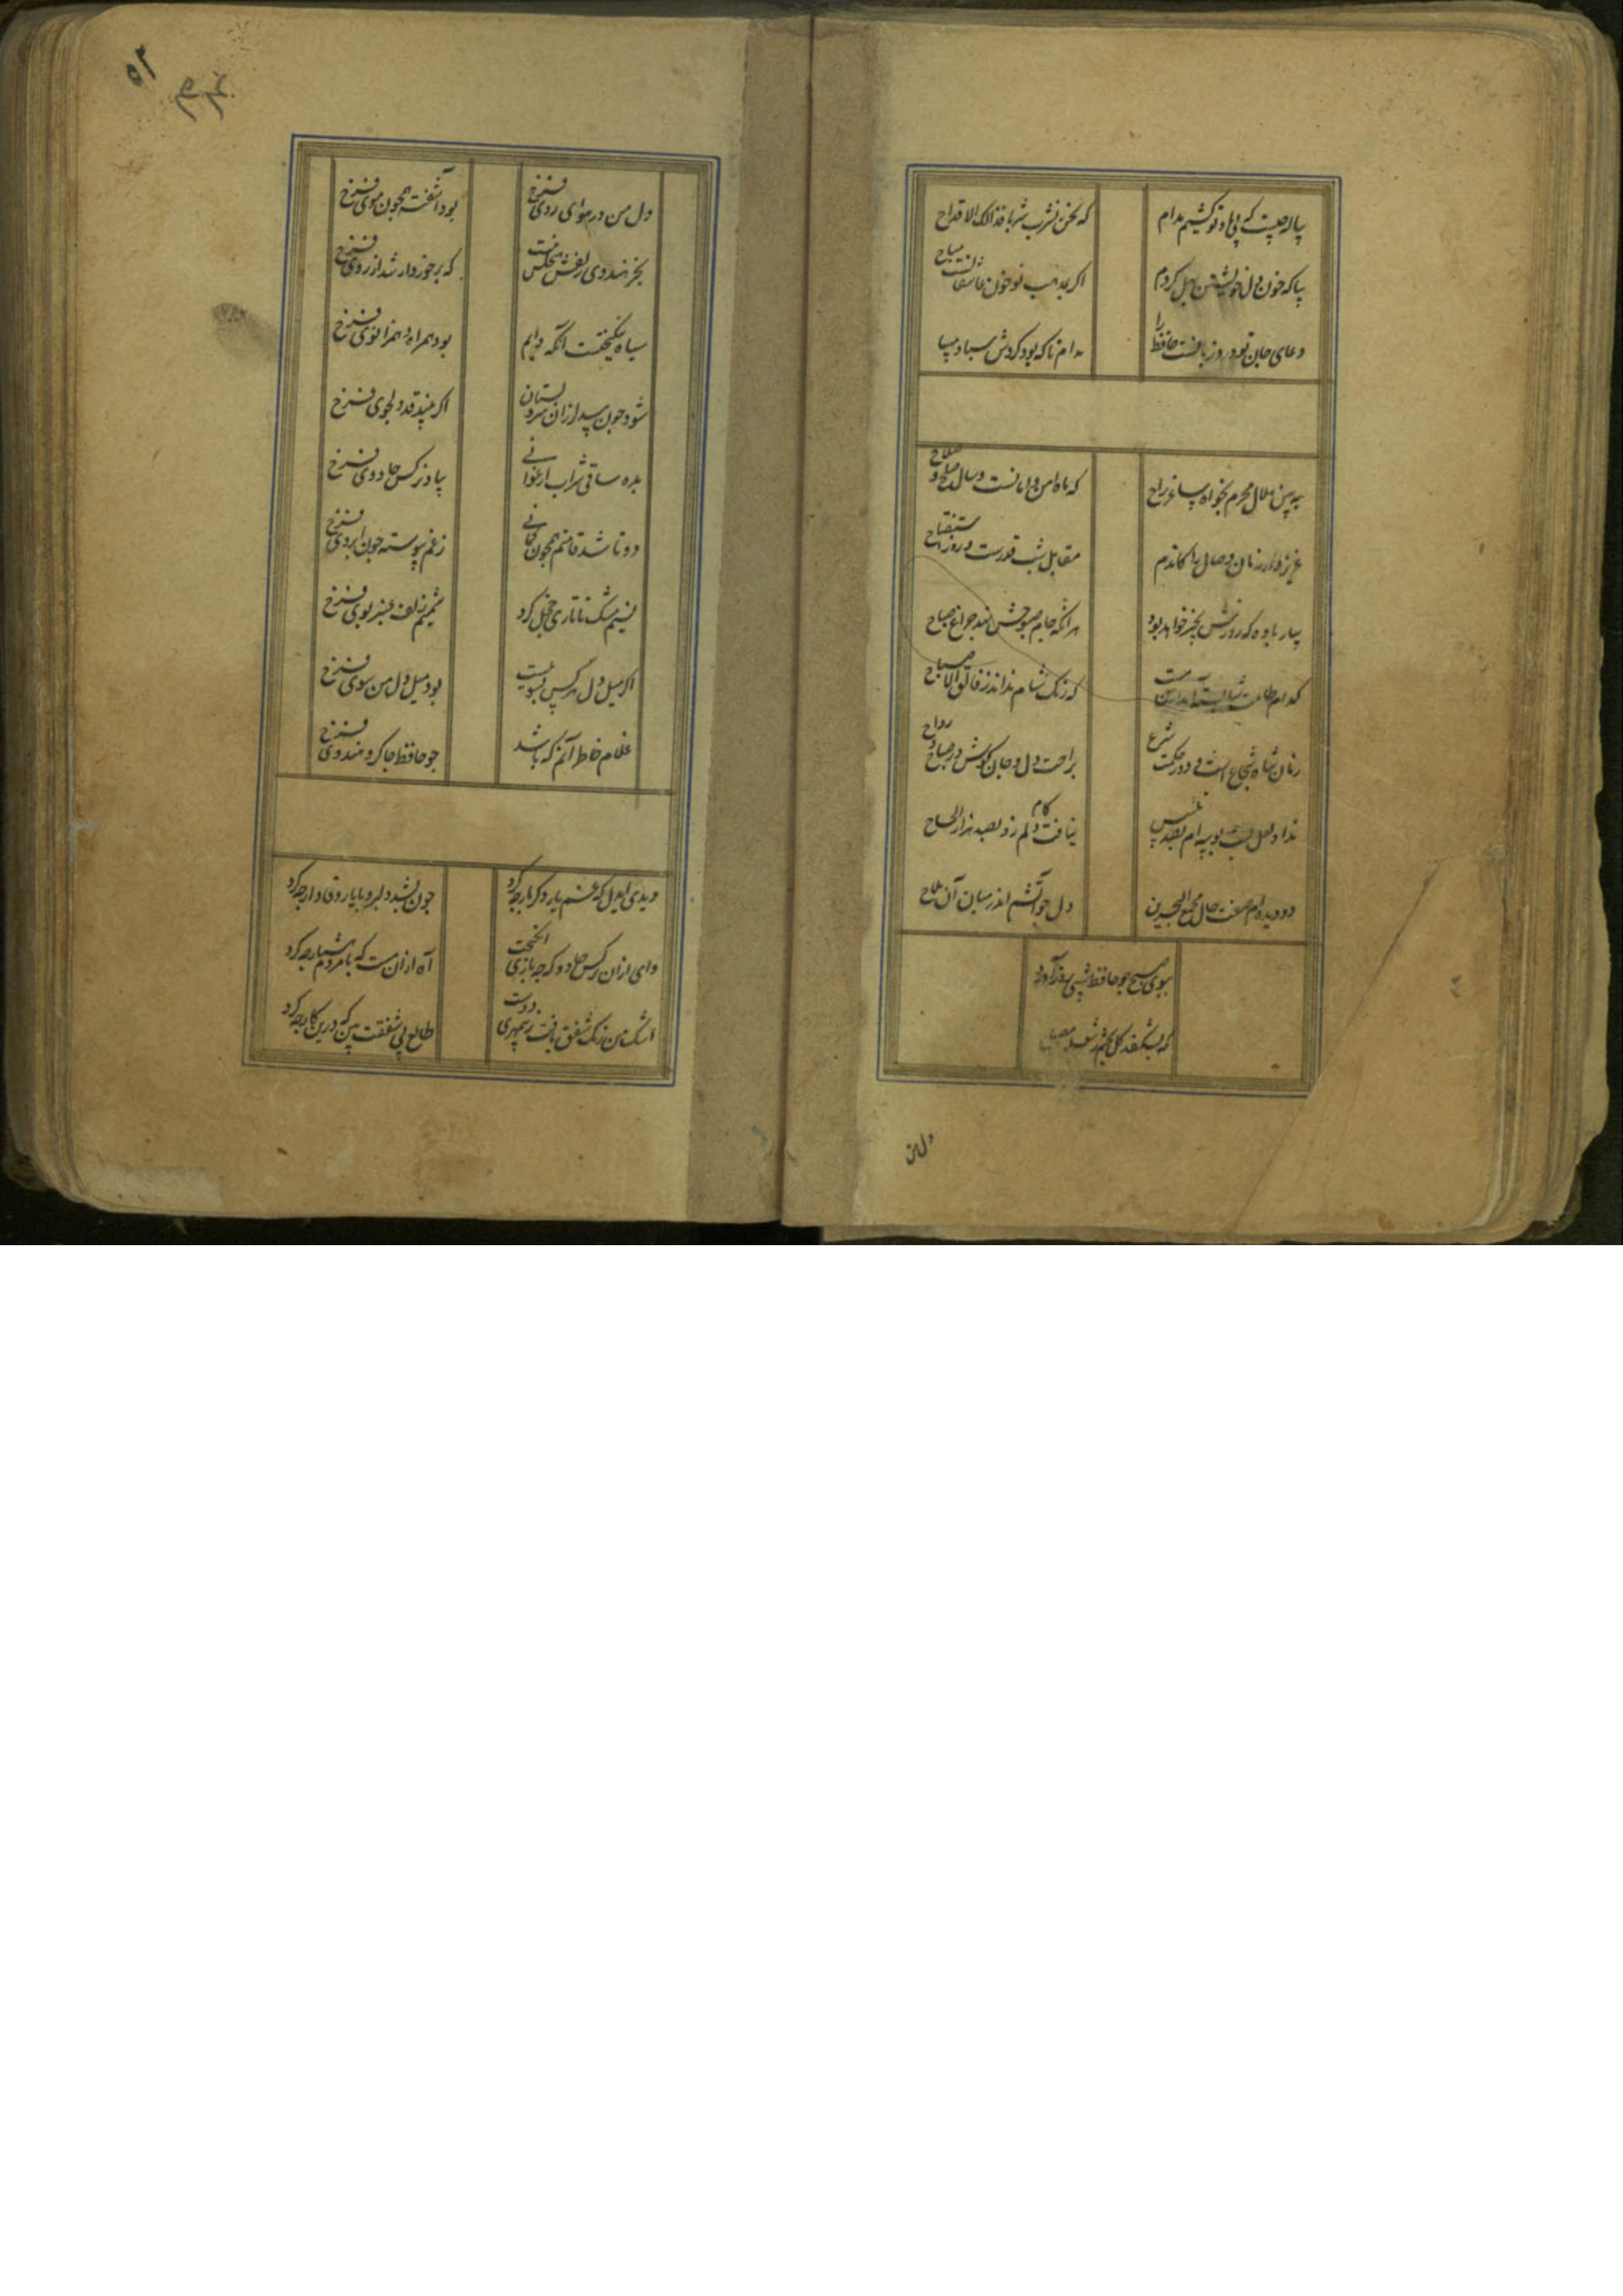 پیاله چیست که بی یاد تو کشیم مدام
که نحن نشرب شربا فذالک الاقداح
بیا که خون دل خویشتن بحل کردم
اکر بمذهب تو خون عاشقانست مباح
دعای جان تو ورد زبانست حافظ را
مدام تا که بود کردش مسا و صبا
به بین هلال محرم بخواه ساغر راح
که ماه امن و امانست و سال صلح و صلاح
عزیز دار زمان وصال را کاندم
مقابل شب قدرست و روز استفتاح
بیار باده که روزش بخیر خواهد بود
هر انکه جام صبوحش نهد چراغ صباح
کدام طاعت شایسته آید از من مست
که بانک شام نداند ز فالق الاصباح
زمان شاه شجاع است و دور حکمت شرع
براحت دل و جان کوش در صباح و رواح
نداد لعل لبت بوسه ام بصد
نیافت کام دلم زو بصد هزار الحاح
دو دیده ام صفت حال مجمع البحرین
دل چو آتشم اندر میان آن ملاح
ببوی صبح چو حافظ شبی بروز آور
که بشکفد کل
دل من
۵۲
دل من در هوای روی فرخ
بود آشفته همچون موی فرخ
بجز هندوی زلفش هیچکس نیست
که برخوردار شد از روی فرخ
سیاه نیکبختست آنکه دایم
بود همراه و همزانوی فرخ
شود چون بید لرزان سرو بستان
اکر بیند قد دلجوی فرخ
بده ساقی شراب ارغوانی
بیاد نرکس جادوی فرخ
دوتا شد قامتم همچون کمانی
ز غم پیوسته چون ابروی فرخ
نسیم مشک تاتاری خجل کرد
شمیم زلف عنبر بوی فرخ
اکر میل دل هر کس بسوییست
بود میل دل من سوی فرخ
غلام خاطر آنم که باشد
چو حافظ چاکر و هندوی فرخ
دیدی ایدل که غم یار دکر بار چه کرد
چون بشد دلبر و با یار وفادار چه کرد
وای ازان نرکس جادو که چه بازی انکیخت
آه ازان مست که با مردم هشیار چه کرد
اشک من رنک شفق یافت ز بیمهری دوست
طالع بی شفقت بین که درین کار چه کرد